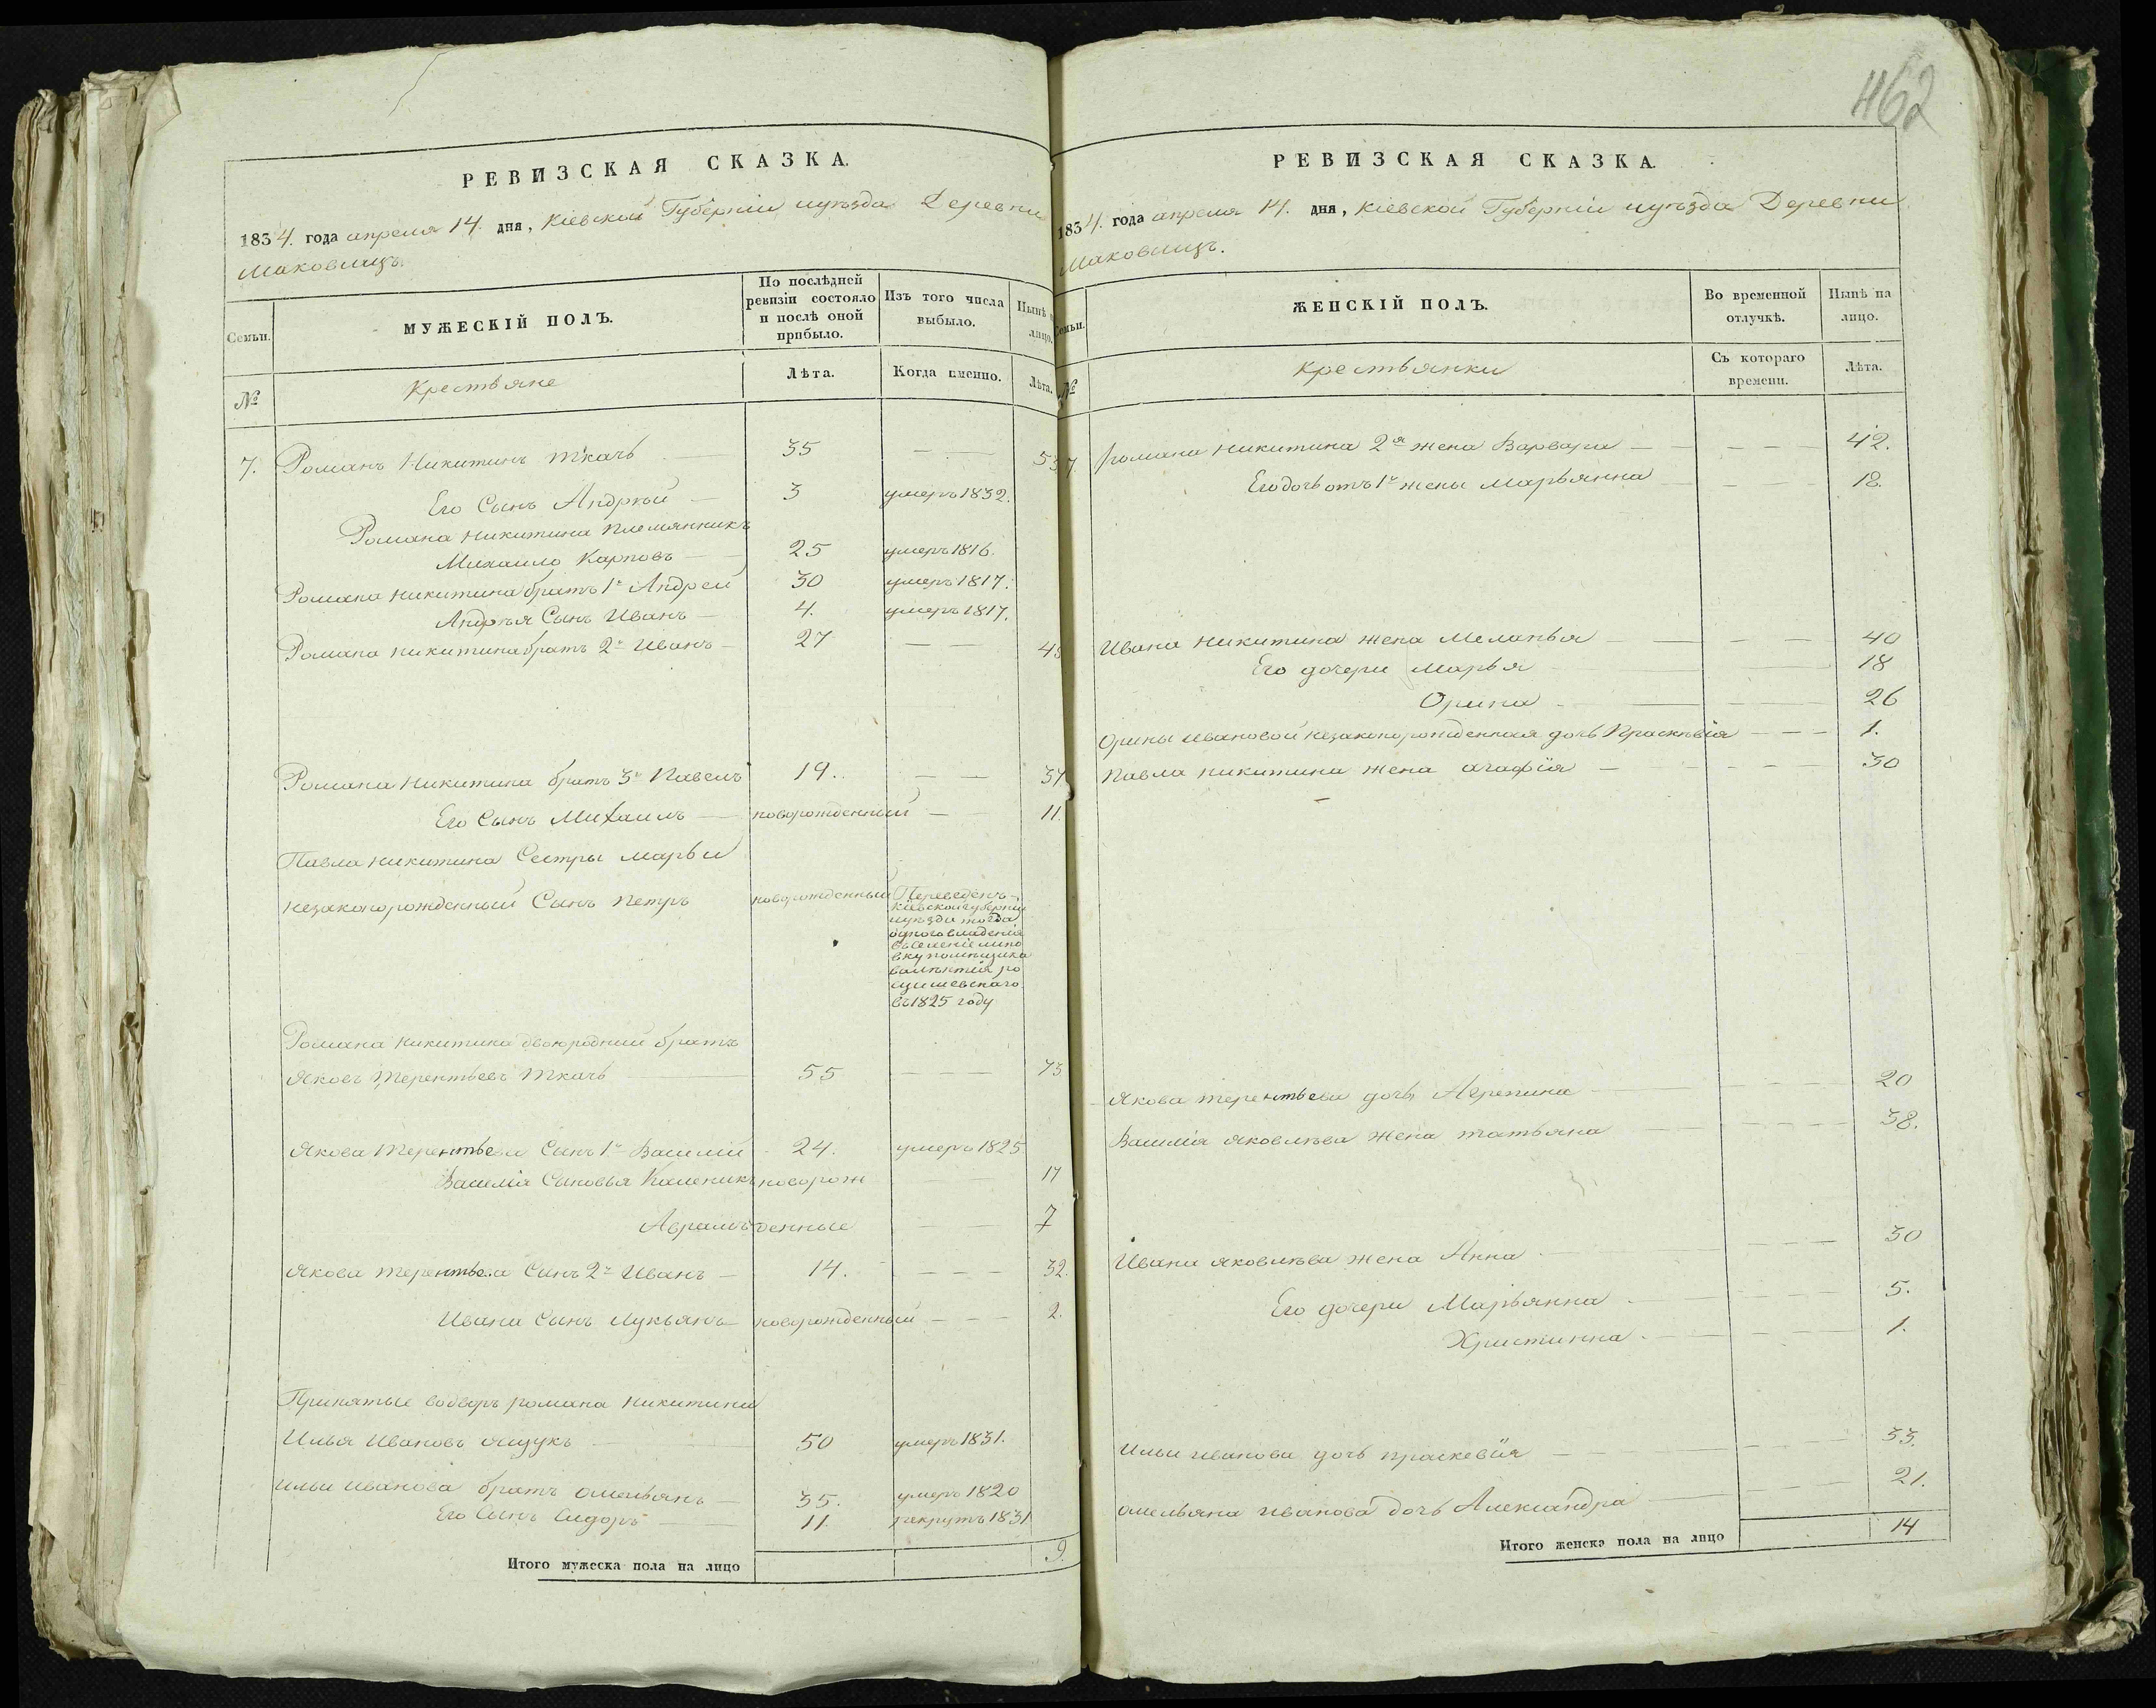 РЕВИЗСКАЯ СКАЗКА.
1834. года апреля 14. дня, Кіевской Губерніи иуѣзда Деревни
Маковищъ.
Семьи.
МУЖЕСКІЙ ПОЛЪ.
По послѣдней ревизіи состояло и послѣ оной прибыло.
Изъ того числа выбыло.
Нынѣ на лицо.
№
Крестьяне
Лѣта.
Когда именно.
Лѣта.
7. Романъ Никитинъ Ткачь — 35 — — 53
Его Сынъ Андрѣй — 3 умеръ 1832.
Романа Никитина Племянникъ
Михайло Карповъ — 25 умеръ 1816.
Романа Никитина братъ 1й Андрей 30 умеръ 1817.
Андрѣя Сынъ Иванъ — 4. умеръ 1817.
Романа Никитина братъ 2й Иванъ — 27 — — 45
Романа Никитина братъ 3й Павелъ 19. — — 37
Его Сынъ Михаилъ — новорожденный — — 11.
Павла Никитина Сестры Марьи
незаконорожденный Сынъ Петръ новорожденный Переведенъ
Кіевской губерніи
иуѣзда тогда
одного владенія
вселеніе липо
вку помещика
валѣнтія ро
щишевскаго
въ 1825 году
Романа Никитина двоюродній братъ
Яковъ Терентьевъ Ткачь — 55 — — — 73
Якова Терентьева Сынъ 1й Василій 24. умеръ 1825
Василія Сыновья Каленикъ новорож — — 17
Аврамъ денные — — 7
Якова Терентьева Сынъ 2й Иванъ — 14. — — — 32.
Ивана Сынъ Лукьянъ новорожденный — — — 2.
Принятые водворъ романа Никитина
Илья Ивановъ Ящукъ — 50 умеръ 1831.
Ильи Иванова братъ Омельянъ — 35. умеръ 1820
Его Сынъ Сидоръ — 11. рекрутъ 1831
Итого мужеска пола на лицо 9.
462
РЕВИЗСКАЯ СКАЗКА.
1834. года апреля 14. дня, Кіевской Губерніи иуѣзда Деревни
Маковищъ.
Семьи.
ЖЕНСКІЙ ПОЛЪ.
Во временной отлучкѣ.
Нынѣ на лицо.
№
Крестьянки
Съ котораго времени.
Лѣта.
7. романа Никитина 2я жена Варвара — — — — 42.
Его дочь отъ 1й жены Марьянна — — — 18.
Ивана Никитина жена Меланья — — — — 40
Его дочери Марья — 18
Орина — — — — 26
Орины Ивановой незаконорожденная дочь Прасковія — — — 1.
Павла Никитина жена агафія — — — — 30
Якова Терентьева дочь Агрепина — — — — 20
Василія Яковлѣва жена татьяна — — — — 38.
Ивана Яковлѣва жена Анна — — — — 30
Его дочери Марьянна — — — — 5.
Христинна — — — — 1.
Ильи Иванова дочь праскевія — — — — 33.
Омельяна Иванова дочь Александра — — — — 21.
Итого женска пола на лицо 14